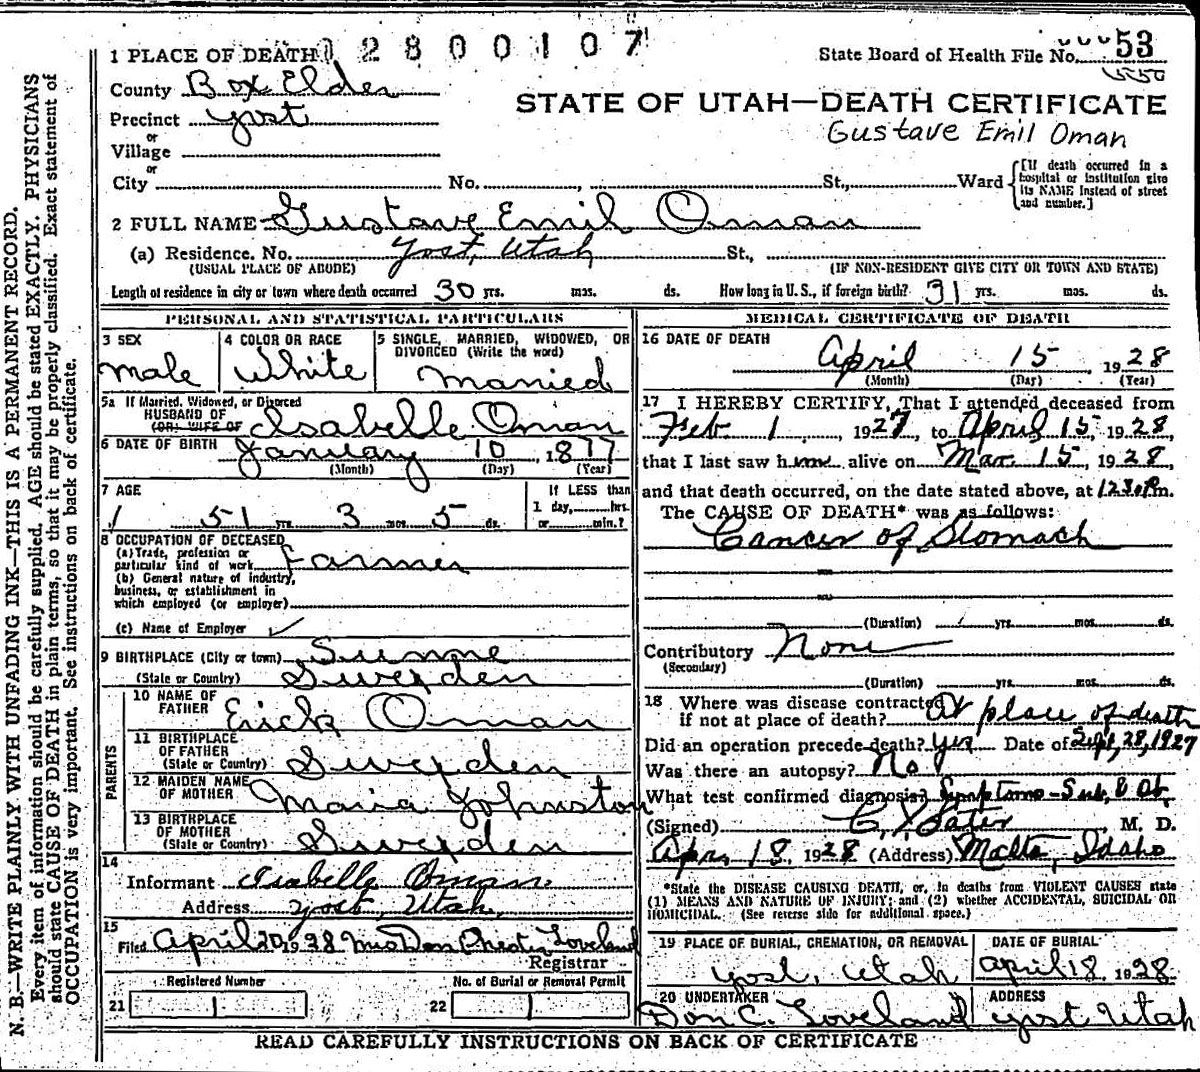 N. B.—WRITE PLAINLY WITH UNFADING INK—THIS IS A PERMANENT RECORD.
Every item of information should be carefully supplied. AGE should be stated EXACTLY. PHYSICIANS
should state CAUSE OF DEATH in plain terms, so that it may be properly classified. Exact statement of
OCCUPATION is very important. See instructions on back of certificate.
1 PLACE OF DEATH 2800107
State Board of Health File No. 53
County Box Elder
STATE OF UTAH—DEATH CERTIFICATE
Precinct Yost
Gustave Emil Oman
or
Village
or
City No. , St., Ward
[If death occurred in a
hospital or institution give
its NAME instead of street
and number.]
2 FULL NAME Gustave Emil Oman
(a) Residence. No. Yost, Utah St.,
(USUAL PLACE OF ABODE) (IF NON-RESIDENT GIVE CITY OR TOWN AND STATE)
Length of residence in city or town where death occurred 30 yrs. mos. ds. How long in U. S., if foreign birth? 31 yrs. mos. ds.
PERSONAL AND STATISTICAL PARTICULARS
3 SEX
Male
4 COLOR OR RACE
White
5 SINGLE, MARRIED, WIDOWED, OR
DIVORCED (Write the word)
Married
5a If Married, Widowed, or Divorced
HUSBAND OF
(OR) WIFE OF Isabelle Oman
6 DATE OF BIRTH January 10, 1877
(Month) (Day) (Year)
7 AGE
51 yrs. 3 mos. 5 ds.
If LESS than
1 day, hrs.
or min.?
8 OCCUPATION OF DECEASED
(a) Trade, profession or
particular kind of work Farmer
(b) General nature of industry,
business, or establishment in
which employed (or employer)
(c) Name of Employer
9 BIRTHPLACE (City or town) Sunne
(State or Country) Sweden
PARENTS
10 NAME OF
FATHER Erick Oman
11 BIRTHPLACE
OF FATHER
(State or Country) Sweden
12 MAIDEN NAME
OF MOTHER Maria Johnston
13 BIRTHPLACE
OF MOTHER
(State or Country) Sweden
14
Informant Isabelle Oman
Address Yost, Utah,
15
Filed April 20 1928 Mrs Don Loveland
Registrar
Registered Number
21
No. of Burial or Removal Permit
22
MEDICAL CERTIFICATE OF DEATH
16 DATE OF DEATH
April 15 1928
(Month) (Day) (Year)
17 I HEREBY CERTIFY, That I attended deceased from
Feb. 1, 1927, to April 15, 1928
that I last saw him alive on Mar. 15, 1928,
and that death occurred, on the date stated above, at 1230 P.m.
The CAUSE OF DEATH* was as follows:
Cancer of Stomach
(Duration) yrs. mos. ds.
Contributory None
(Secondary)
(Duration) yrs. mos. ds.
18 Where was disease contracted
if not at place of death? At place of death
Did an operation precede death? yes Date of Sept, 28, 1927
Was there an autopsy? No
What test confirmed diagnosis? Symptoms - Sub, & Ob,
(Signed) M. D.
Apr. 18, 1928 (Address) Malta, Idaho
*State the DISEASE CAUSING DEATH, or, in deaths from VIOLENT CAUSES state
(1) MEANS AND NATURE OF INJURY; and (2) whether ACCIDENTAL, SUICIDAL OR
HOMICIDAL. (See reverse side for additional space.)
19 PLACE OF BURIAL, CREMATION, OR REMOVAL
Yost, Utah
DATE OF BURIAL
April 18 1928
20 UNDERTAKER
Don C. Loveland
ADDRESS
Yost Utah
READ CAREFULLY INSTRUCTIONS ON BACK OF CERTIFICATE